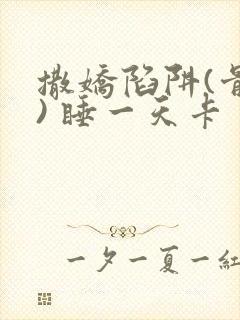 撒嬌陷阱(骨
) 睡一天卡
一夕一夏一紅